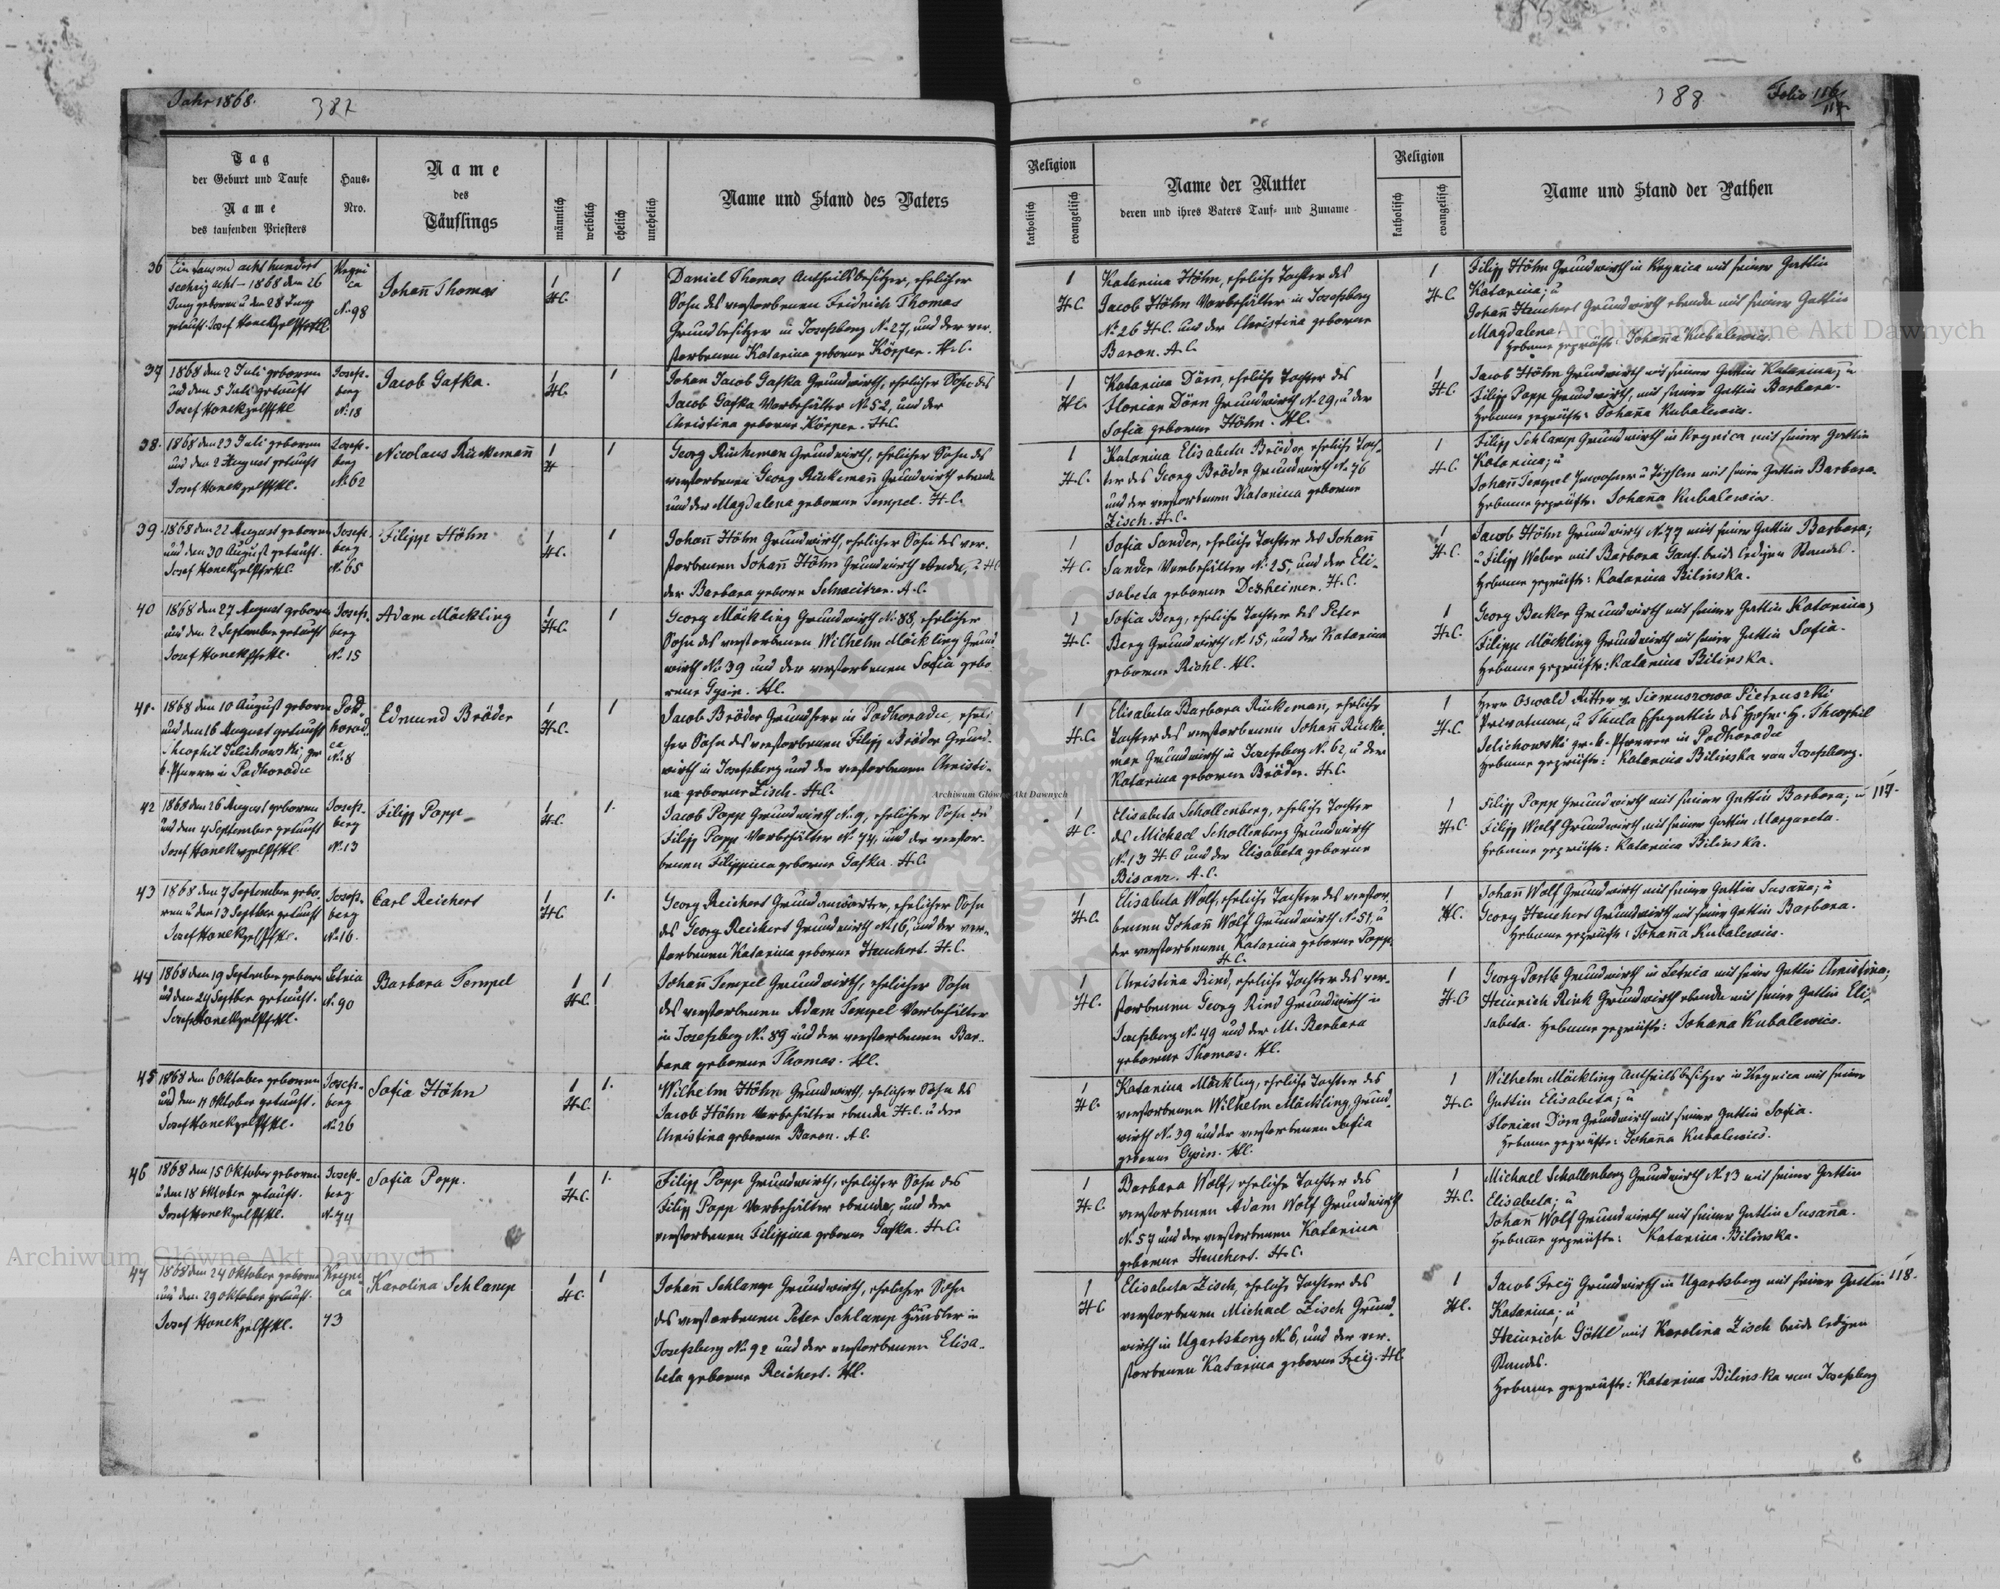 Jahr 1868.
387
388
Folio 116/117
Tag
der Geburt und Taufe
Name
des taufenden Priesters
Haus-
Nro.
Name
des
Täuflings
männlich
weiblich
ehelich
unehelich
Name und Stand des Vaters
Religion
katholisch
evangelisch
Name der Mutter
deren und ihres Vaters Tauf- und Zuname
Religion
katholisch
evangelisch
Name und Stand der Pathen
36
Ein tausend acht hundert
sechzig acht - 1868 den 26
Juny geboren u den 28 Juny
getauft. Josef Honek
Kryni
ca
No 98
Johan̄ Thomas
1
H.C.
1
Daniel Thomas Antheilsbesitzer, ehelicher
Sohn des verstorbenen Fridrich Thomas
Grundbesitzer in Josefsberg No 27, und der ver-
storbenen Katarina geborne Körper. H.C.
1
H.C.
Katarina Höhn, eheliche Tochter des
Jacob Höhn Vorbehälter in Josefsberg
No 26 H.C. und der Christina geborne
Baron. A.C.
1
H.C.
Filipp Höhn Grundwirth in Krynica mit seiner Gattin
Katarina; u
Johan̄ Heuchert Grundwirth ebenda mit seiner Gattin
Magdalena
Hebame geprüfte: Johan̄a Kubalewicz.
37
1868 den 2 Juli geboren
und den 5 Juli getauft
Josef Honek
Josefs-
berg
No 18
Jacob Gafka.
1
H.C.
1
Johan Jacob Gafka Grundwirth, ehelicher Sohn des
Jacob Gafka Vorbehälter No 52, und der
Christina geborne Körper. H.C.
1
H.C.
Katarina Dörn, eheliche Tochter des
Florian Dörn Grundwirth No 29, u der
Sofia geborne Höhn. H.C.
1
H.C.
Jacob Höhn Grundwirth mit seiner Gattin Katarina; u
Filipp Popp Grundwirth, mit seiner Gattin Barbara.
Hebame geprüfte: Johan̄a Kubalewicz.
38.
1868 den 23 Juli geboren
und den 2 August getauft
Josef Honek
Josefs-
berg
No 62
Nicolaus Rückeman̄
1
H
1
Georg Rückeman Grundwirth, ehelicher Sohn des
verstorbenen Georg Rückeman̄ Grundwirth ebenda
und der Magdalena geborne Tempel. H.C.
1
H.C.
Katarina Elisabeta Bröder eheliche Toch-
ter des Georg Bröder Grundwirth No 76
und der verstorbenen Katarina geborne
Zisch. H.C.
1
H.C.
Filipp Schlamp Grundwirth in Krynica mit seiner Gattin
Katarina; u
Johan̄ Tempel Inwohner u Töpfer mit seiner Gattin Barbara.
Hebame geprüfte: Johan̄a Kubalewicz.
39
1868 den 22 August geboren
und den 30 August getauft.
Josef Honek
Josefs-
berg
No 65
Filipp Höhn
1
H.C.
1
Johan̄ Höhn Grundwirth, ehelicher Sohn des ver-
storbenen Johan̄ Höhn Grundwirth ebenda, H.C.
der Barbara geborne Schneitzer. A.C.
1
H.C.
Sofia Sander, eheliche Tochter des Johan̄
Sander Vorbehälter No 25, und der Eli-
sabeta geborne Dexheimer. H.C.
1
H.C.
Jacob Höhn Grundwirth No 77 mit seiner Gattin Barbara;
u Filipp Weber mit Barbara Ganf. beide ledigen Standes.
Hebame geprüfte: Katarina Bilinska.
40
1868 den 27 August geboren
und den 2 September getauft
Josef Honek
Josefs-
berg
No 15
Adam Möckling
1
H.C.
1
Georg Möckling Grundwirth No 88, ehelicher
Sohn des verstorbenen Wilhelm Möckling Grund
wirth No 39 und der verstorbenen Sofia gebo
rene Gysin. H.C.
1
H.C.
Sofia Berg, eheliche Tochter des Peter
Berg Grundwirth No 15, und der Katarina
geborne Richl. H.C.
1
H.C.
Georg Becker Grundwirth mit seiner Gattin Katarina;
Filipp Möckling Grundwirth mit seiner Gattin Sofia.
Hebame geprüfte: Katarina Bilinska.
41.
1868 den 10 August geboren
und den 16 August getauft
Theophil Jelichowski gr
k. Pfarrer in Podhoradce
Pod-
horod-
ce
No 8
Edmund Bröder
1
H.C.
1
Jacob Bröder Grundherr in Podhoradce, eheli-
cher Sohn des verstorbenen Filipp Bröder Grund-
wirth in Josefsberg und der verstorbenen Christi-
na geborne Zisch. H.C.
1
H.C.
Elisabeta Barbara Rückeman, eheliche
Tochter des verstorbenen Johan̄ Rücke-
man Grundwirth in Josefsberg No 62, u der
Katarina geborne Bröder. H.C.
1
H.C.
Herr Oswald Ritter v. Siemuszowa Pietruszki
Privatman, u Thecla Ehegattin des Theophil
Jelichowski gr. k. Pfarrer in Podhoradce
Hebame geprüfte: Katarina Bilinska von Josefsberg.
42
1868 den 26 August geboren
und den 4 September getauft
Josef Honek
Josefs-
berg
No 13
Filipp Popp
1
H.C.
1.
Jacob Popp Grundwirth No 9, ehelicher Sohn des
Filipp Popp Vorbehälter No 74, und der verstor-
benen Filippina geborne Gafka. H.C.
1
H.C.
Elisabeta Schollenberg, eheliche Tochter
des Michael Schollenberg Grundwirth
No 13 H.C und der Elisabeta geborne
Bisanz. A.C.
1
H.C.
Filipp Popp Grundwirth mit seiner Gattin Barbara; u
Filipp Wolf Grundwirth mit seiner Gattin Margareta.
Hebame geprüfte: Katarina Bilinska.
117.
43
1868 den 7 September gebo-
ren u den 13 September getauft
Josef Honek
Josefs-
berg
No 16.
Carl Reichert
1
H.C
1.
Georg Reichert Grundanwarter, ehelicher Sohn
des Georg Reichert Grundwirth No 16, und der ver-
storbenen Katarina geborne Heuchert. H.C.
1
H.C.
Elisabeta Wolf, eheliche Tochter des verstor-
benen Johan̄ Wolf Grundwirth No 51, u
der verstorbenen Katarina geborne Popp.
H.C.
1
H.C.
Johan̄ Wolf Grundwirth mit seiner Gattin Susan̄a; u
Georg Heuchert Grundwirth mit seiner Gattin Barbara.
Hebame geprüfte: Johan̄a Kubalewicz.
44
1868 den 19 September geboren
und den 24 September getauft.
Josef Honek
Letnia
No 90
Barbara Tempel
1
H.C.
1
Johan̄ Tempel Grundwirth, ehelicher Sohn
des verstorbenen Adam Tempel Vorbehälter
in Josefsberg No 89 und der verstorbenen Bar-
bara geborne Thomas. H.C.
1
H.C.
Christina Rind, eheliche Tochter des ver-
storbenen Georg Rind Grundwirth in
Josefsberg No 49 und der M. Barbara
geborne Thomas. H.C.
1
H.C
Georg Grundwirth in Letnia mit seiner Gattin Christina;
Heinrich Rink Grundwirth ebenda mit seiner Gattin Eli-
sabeta. Hebame geprüfte: Johana Kubalewicz.
45
1868 den 6 Oktober geboren
und den 11 Oktober getauft.
Josef Honek
Josefs-
berg
No 26
Sofia Höhn
1
H.C.
1.
Wilhelm Höhn Grundwirth, ehelicher Sohn des
Jacob Höhn Vorbehälter ebenda H.C. u der
Christina geborne Baron. A.C.
1
H.C.
Katarina Möckling, eheliche Tochter des
verstorbenen Wilhelm Möckling, Grund-
wirth No 39 und der verstorbenen Sofia
geborne Gysin. H.C.
1
H.C.
Wilhelm Möckling Antheilsbesitzer in Krynica mit seiner
Gattin Elisabeta; u
Florian Dörn Grundwirth mit seiner Gattin Sofia.
Hebame geprüfte: Johan̄a Kubalewicz.
46
1868 den 15 Oktober geboren
u den 18 Oktober getauft.
Josef Honek
Josefs-
berg
No 74
Sofia Popp.
1
H.C.
1.
Filipp Popp Grundwirth, ehelicher Sohn des
Filipp Popp Vorbehälter ebenda, und der
verstorbenen Filippina geborne Gafka. H.C.
1
H.C.
Barbara Wolf, eheliche Tochter des
verstorbenen Adam Wolf Grundwirth
No 57 und der verstorbenen Katarina
geborne Heuchert. H.C.
1
H.C.
Michael Schollenberg Grundwirth No 13 mit seiner Gattin
Elisabeta; u
Johan̄ Wolf Grundwirth mit seiner Gattin Susan̄a.
Hebame geprüfte: Katarina Bilinska.
47
1868 den 24 Oktober geboren
und den 29 Oktober getauft.
Josef Honek
Kryni
ca
73
Karolina Schlamp
1
H.C.
1
Johan̄ Schlamp Grundwirth, ehelicher Sohn
des verstorbenen Peter Schlamp Häusler in
Josefsberg No 92 und der verstorbenen Elisa-
beta geborne Reichert. H.C.
1
H.C
Elisabeta Zisch, eheliche Tochter des
verstorbenen Michael Zisch Grund-
wirth in Ugartsberg No 6, und der ver-
storbenen Katarina geborne Frey. H.C
1
H.C.
Jacob Frey Grundwirth in Ugartsberg mit seiner Gattin
Katarina; u
Heinrich Göttl mit Karolina Zisch beide ledigen
Standes.
Hebame geprüfte: Katarina Bilinska von Josefsberg
118.
Archiwum Główne Akt Dawnych
Archiwum Główne Akt Dawnych
Archiwum Główne Akt Dawnych